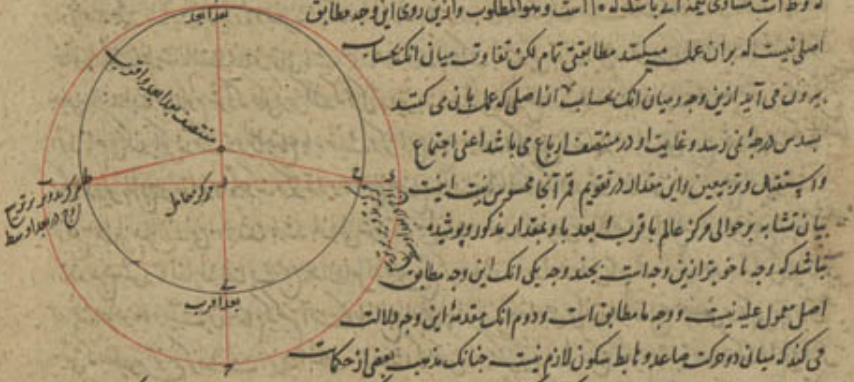 که وط ات مساوی نیمه اے باشد که ما است و هو المطلوب وازین روی این وجه مطابق
اصلی نیست که بران عمل میکنند مطابقتی تمام لکن تفاوت میان انک بحساب
بیرون می آید ازین وجه ومیان انک بحساب از اصلی که عمل بان می کنند
بسدس درجهٔ نمی رسد وغایت او در منتصف ارباع می باشد اعنی اجتماع
واستقبال وتربیعین واین مقدار در تقویم قمر آنجا محسوس نیست اینست
بیان تشابه بر حوالی مرکز عالم باقرب ابعد با و بمقدار مذکور وپوشیده
نباشد که وجه ما خوبتر ازین وجه است بچند وجه یکی انک این وجه مطابق
اصل معمول علیه نیست ووجه ما مطابق ات ودوم انک مقدمهٔ این وجه دلالت
می کند که میان دو حرکت صاعد وهابط سکون لازم نیست چنانک مذهب بعضی از حکمات
بعد ابعد
منتصف بعد ابعد واقرب
مرکز حامل
مرکز تدویر در تربیع
اوج در بعد اوسط
بعد اقرب